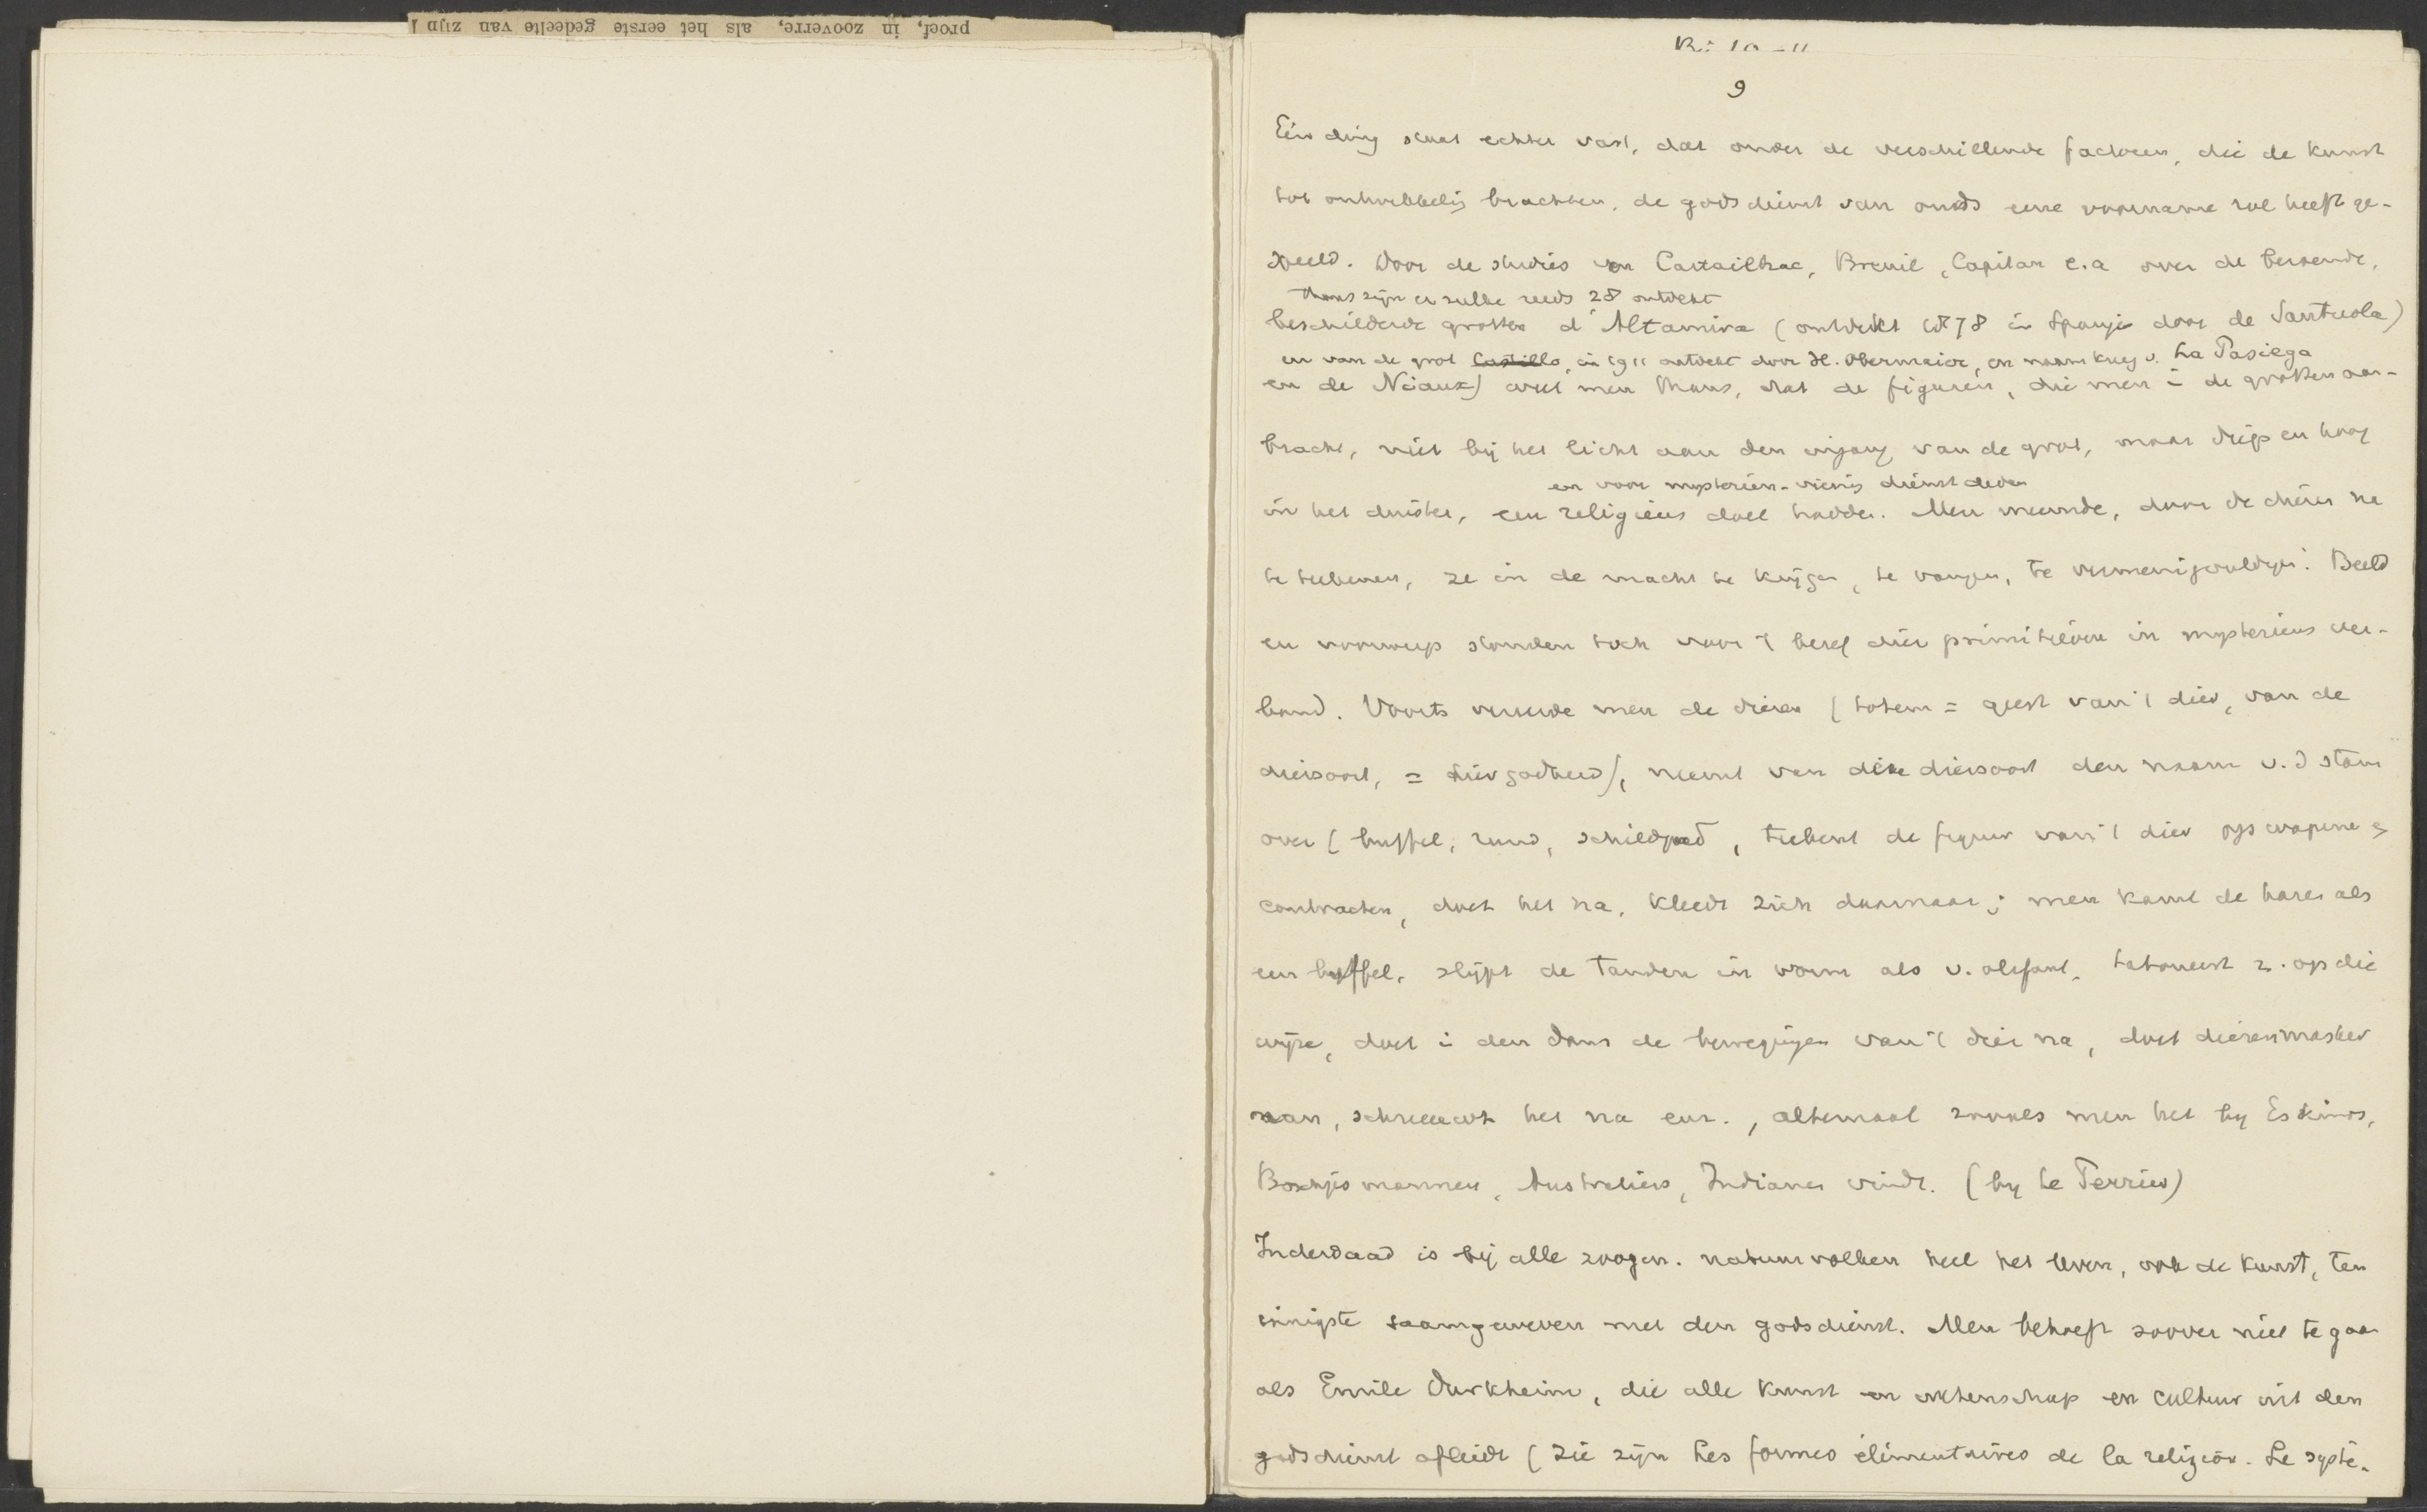 proef, in zooverre, als het eerste gedeelte van zijn
9
Eén ding staat echter vast, dat onder de verschillende factoren, die de kunst
tot ontwikkeling brachten, de godsdienst van ouds eene voorname rol heeft ge-
speeld. Door de studies van Cartailhac, Breuil, Capitan e.a over de beroemde,
thans zijn er zulke reeds 28 ontdekt
beschilderde grotten d'Altamira (ontdekt 1878 in Spanje door de Santuola)
en van de grot Castillo, in 1911 ontdekt door H. Obermaier, en naam kreeg v. La Pasiega
en de Niaux) weet men thans, dat de figuren, die men in de grotten aan-
bracht, niet bij het licht aan den ingang van de grot, maar diep en hoog
en voor mysteriën-viering dienst deden
in het duister, een religieus doel hadden. Men meende, door de dieren na
te teekenen, ze in de macht te krijgen, te vangen, te vermenigvuldigen. Beeld
en voorwerp stonden toch voor 't besef dier primitieven in mysterieus ver-
band. Voorts vereerde men de dieren (totem = geest van 't dier, van de
diersoort, = diergodheid), neemt van die diersoort den naam v.d stam
over (buffel, rund, schildpad, teekent de figuur van 't dier op wapens en
contracten, doet het na, kleedt zich daarnaar; men kamt de haren als
een buffel, slijpt de tanden in vorm als v. olifant, tatoueert z. op die
wijze, doet in den dans de bewegingen van 't dier na, doet dierenmasker
aan, schreeuwt het na enz., altemaal zooals men het by Eskimos,
Boschjesmannen, Australiërs, Indianen vindt. (by te Perriér)
Inderdaad is bij alle zoogen. natuurvolken heel het leven, ook de kunst, ten
innigste saamgeweven met den godsdienst. Men behoeft zoover niet te gaan
als Emile Durkheim, die alle kunst en wetenschap en cultuur uit den
godsdienst afleidt (zie zijn Les formes élémentaires de la religion. Le systè-